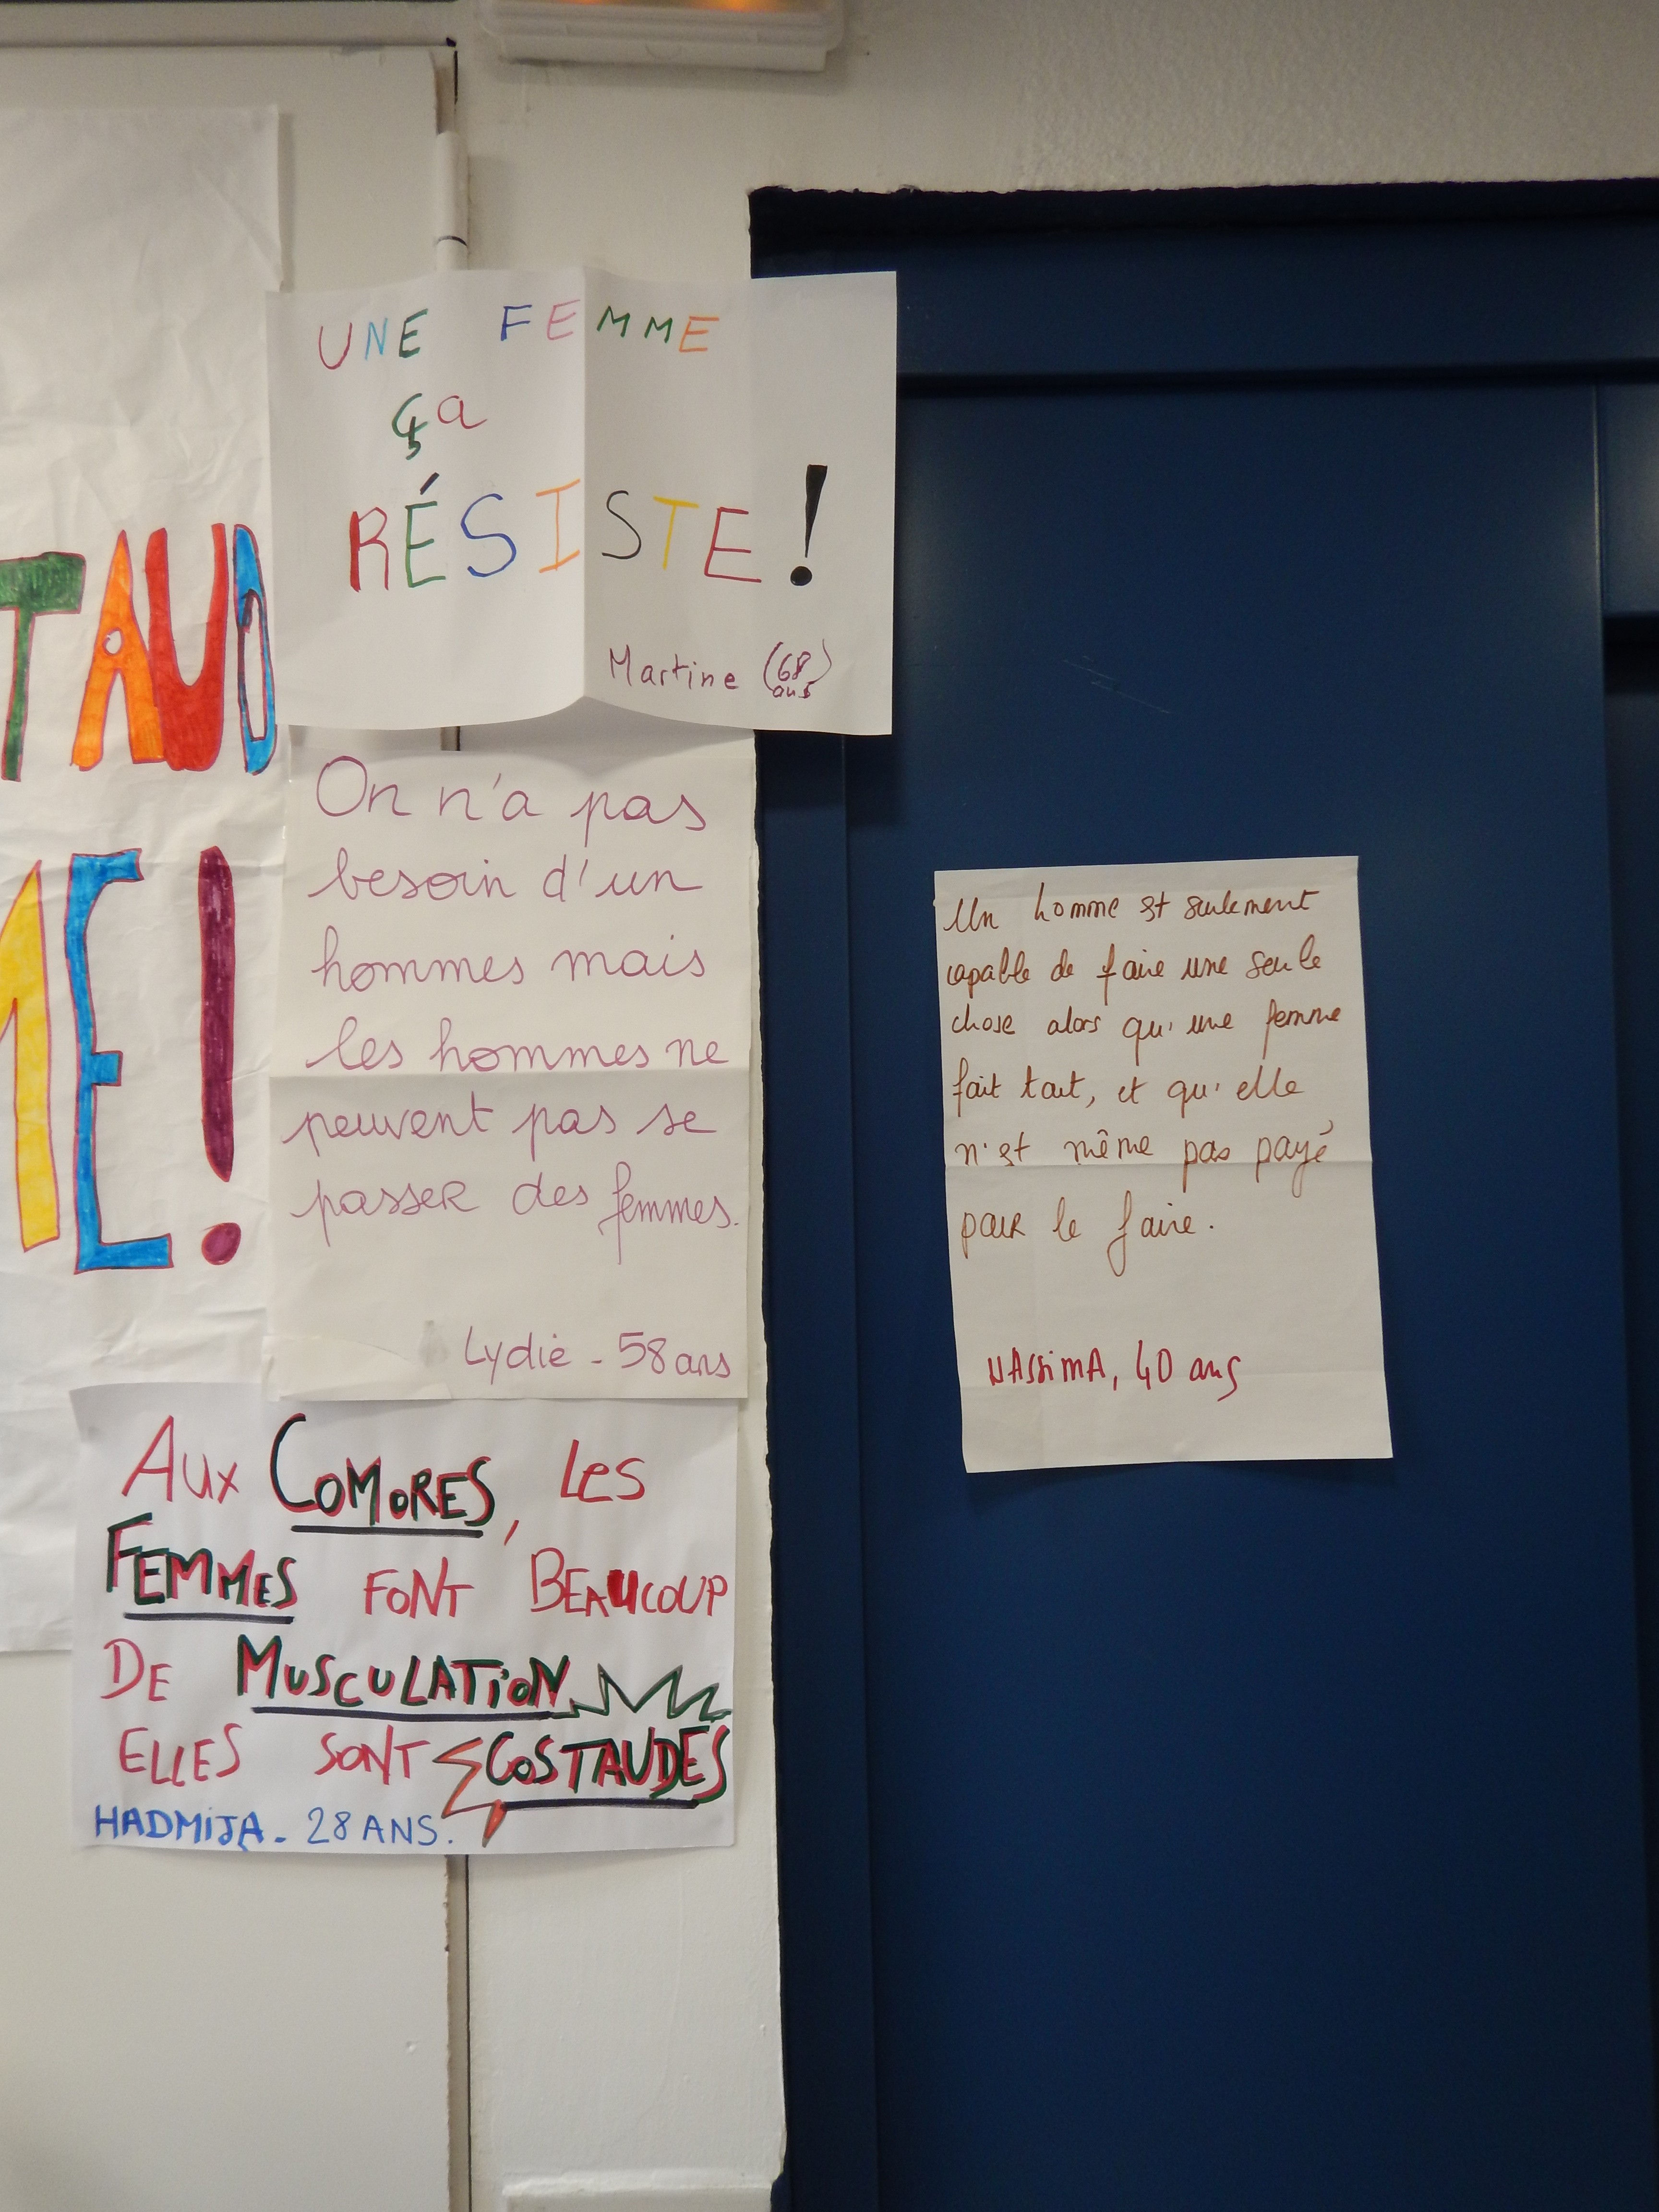 TAUD
ME!
UNE FEMME
ça
RÉSISTE!
Martine (68
ans)
On n'a pas
besoin d'un
hommes mais
les hommes ne
peuvent pas se
passer des femmes.
Lydie - 58 ans
AUX COMORES, LES
FEMMES FONT BEAUCOUP
DE MUSCULATION
ELLES SONT COSTAUDES
HADMIJA. 28 ANS.
Un homme est seulement
capable de faire une seule
chose alors qu'une femme
fait tout, et qu'elle
n'est même pas payé
pour le faire.
NASSIMA, 40 ans